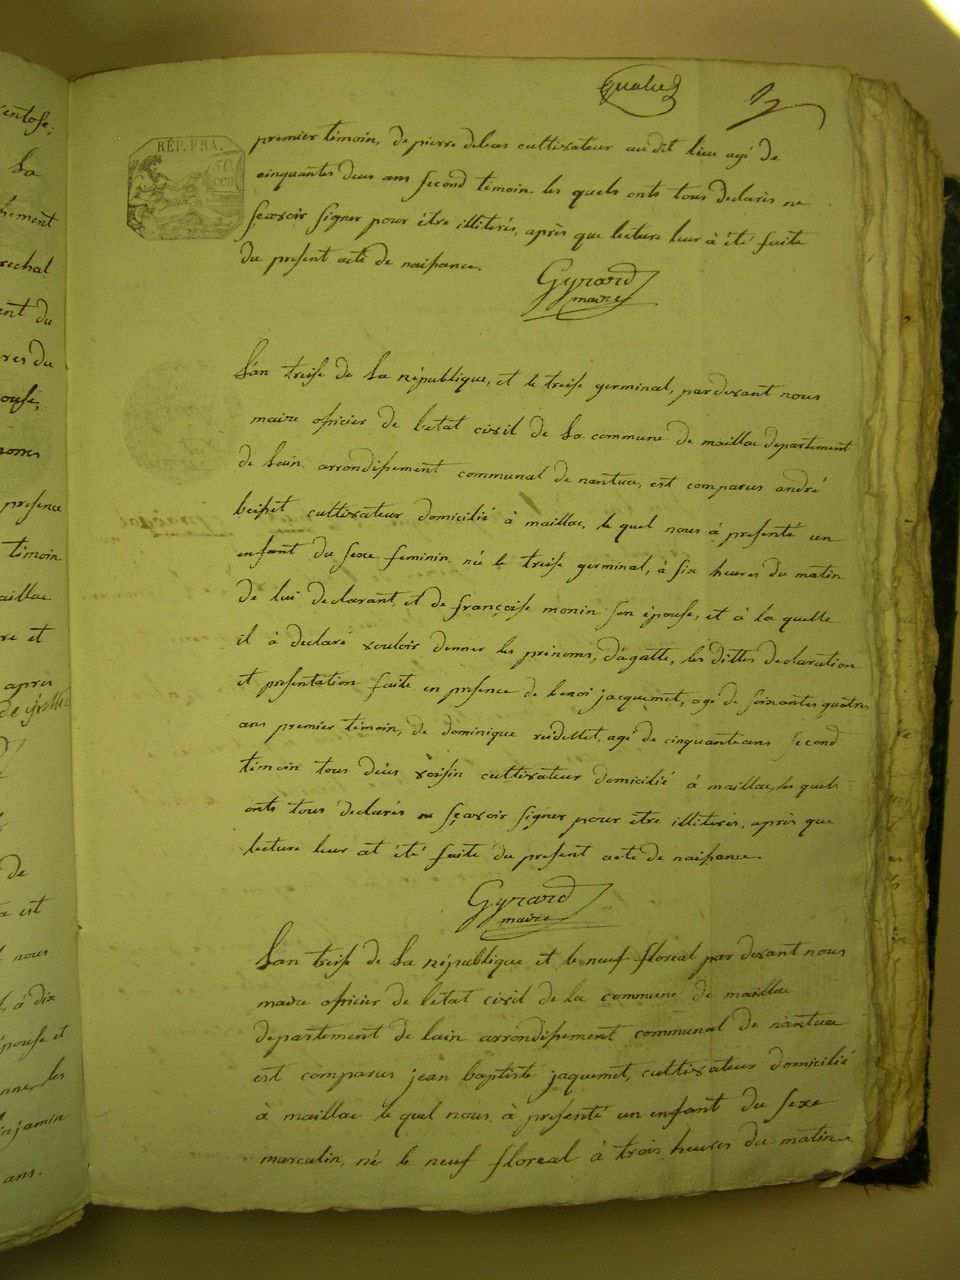 quatre
RÉP. FRA.
premier témoin, de pierre debeas cultivateur au dit lieu agé de
cinquantes deux ans second temoin les quels onts tous declarés ne
sçavoir signer pour être illitérés, après que lecture leur à été faite
du present acte de naissance.
Gyrard
maire
L'an treise de La république, et le treise germinal, pardevant nous
maire oficier de l'etat civil de La commune de maillac departement
de Lain arrondissement communal de nantua, est comparus andré
beisset cultivateur domicilié à maillac, le quel nous à presenté un
enfant du sexe feminin né le treise germinal, à six heures du matin
de lui declarant, et de françoise monin son épouse, et à la quelle
il à declaré vouloir donner les prénoms, d'agatte, les dittes declaration
et presentation faite en presence de benoi jacquemet, agé de soixantes quatres
ans premier témoin, de dominique reidellet, agé de cinquante ans second
témoin tous deus voisin cultivateur domicilié à maillac, les quels
onts tous declarés ne sçavoir signer pour être illiterés, après que
lecture leur at été faite du present acte de naissance.
Gyrard
maire
L'an treise de La république et le neuf floreal par devant nous
maire oficier de l'etat civil de la commune de maillac
departement de lain arrondissement communal de nantua
est comparus jean baptiste jaquemet, cultivateur domicilié
à maillac le quel nous à presenté un enfant du sexe
masculin, né le neuf floreal à trois heures du matin